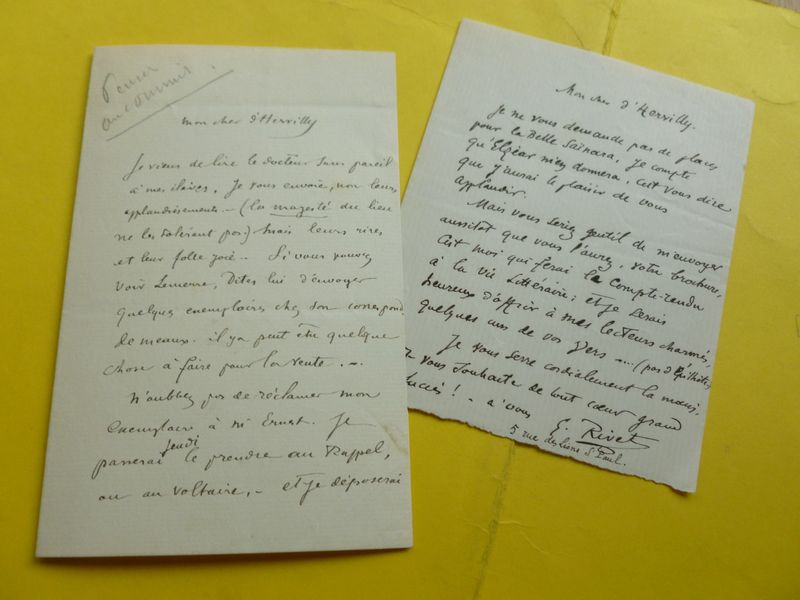 Penser
au commis
Mon cher d'Hervilly
Je viens de lire le docteur Sans pareil
à mes élèves. Je vous envoie, non leurs
applaudissements – (la majesté du lieu
ne les tolérant pas.) Mais leurs rires
et leur folle joie.. Si vous voyez
voir Lemerre, Dites lui d'envoyer
quelques exemplaires chez son correspond
de Meaux. il y a peut être quelque
chose à faire pour la vente. –.
N'oubliez pas de réclamer mon
Exemplaire à Ernest. Je
passerai jeudi le prendre au Rappel,
ou au Voltaire, – et je déposerai
Mon cher d'Hervilly.
Je ne vous demande pas de places
pour la Belle Saïnara. Je compte
qu'Elzéar m'en donnera, c'est vous dire
que j'aurai le plaisir de vous
applaudir.
Mais vous seriez gentil de m'envoyer
aussitot que vous l'aurez, votre brochure,
C'est moi qui ferai le Compte-rendu
à la Vie Littéraire, et je serais
heureux d'offrir à mes lecteurs charmés,
quelques uns de vos Vers .... (pas d'Epithètes)
Je vous serre cordialement la main,
Je vous souhaite de tout cœur grand
succès ! – à vous E. Rivet
5 rue des Lions St Paul.